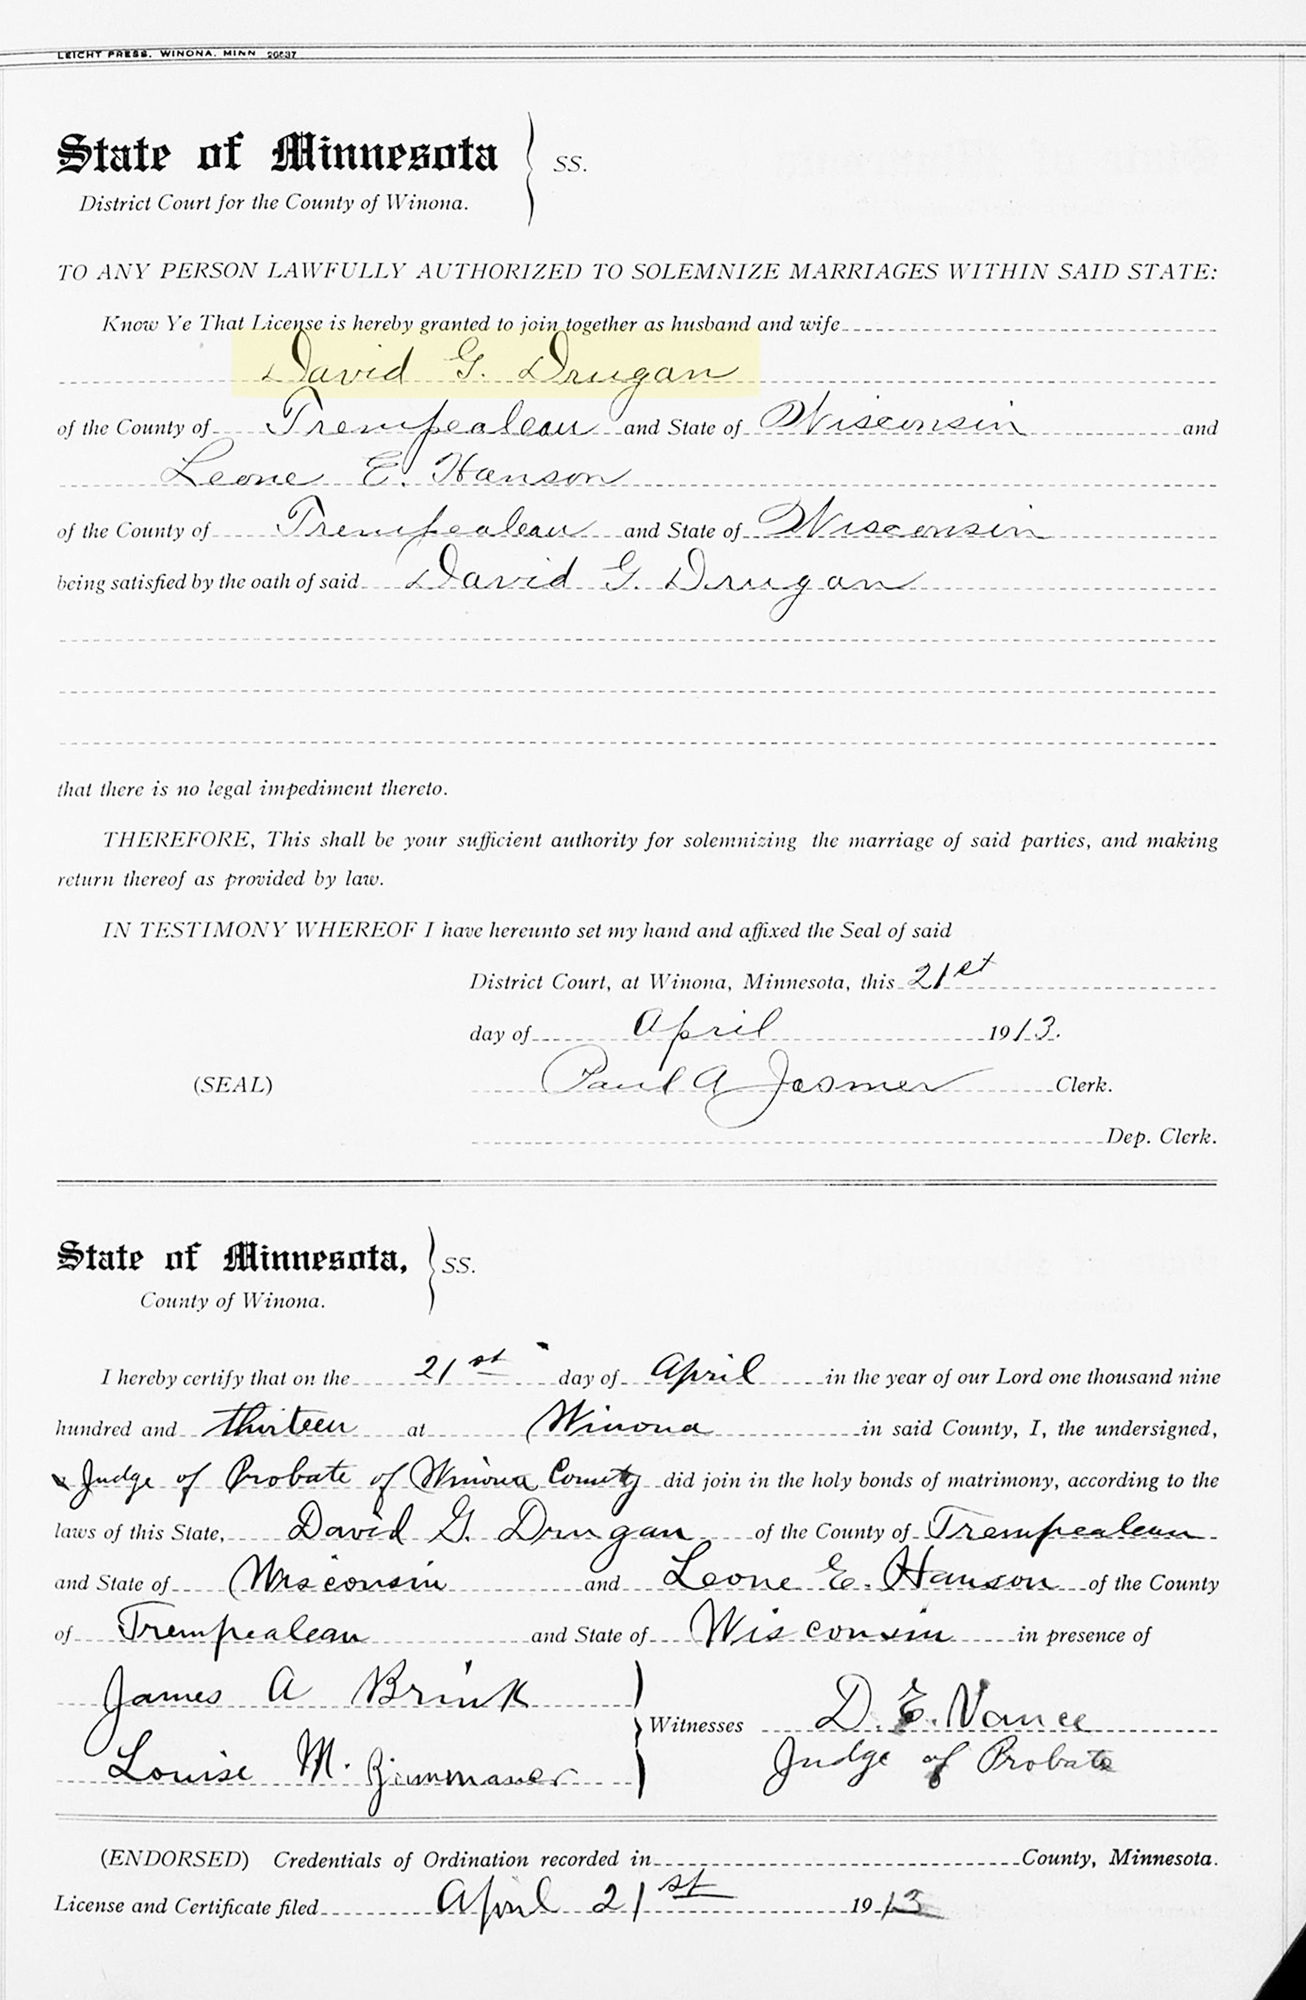 LEICHT PRESS, WINONA, MINN 20637
State of Minnesota } SS.
District Court for the County of Winona.
TO ANY PERSON LAWFULLY AUTHORIZED TO SOLEMNIZE MARRIAGES WITHIN SAID STATE:
Know Ye That License is hereby granted to join together as husband and wife
David G. Drugan
of the County of Trempealeau and State of Wisconsin and
Leone E. Hanson
of the County of Trempealeau and State of Wisconsin
being satisfied by the oath of said David G. Drugan
that there is no legal impediment thereto.
THEREFORE, This shall be your sufficient authority for solemnizing the marriage of said parties, and making
return thereof as provided by law.
IN TESTIMONY WHEREOF I have hereunto set my hand and affixed the Seal of said
District Court, at Winona, Minnesota, this 21st
day of April 1913.
(SEAL) Paul A Jasmer Clerk.
Dep. Clerk.
State of Minnesota, } SS.
County of Winona.
I hereby certify that on the 21st day of April in the year of our Lord one thousand nine
hundred and thirteen at Winona in said County, I, the undersigned,
Judge of Probate of Winona County did join in the holy bonds of matrimony, according to the
laws of this State, David G. Drugan of the County of Trempealeau
and State of Wisconsin and Leone E. Hanson of the County
of Trempealeau and State of Wisconsin in presence of
James A Brink
Witnesses D. E. Vance
Louise M. Judge of Probate
(ENDORSED) Credentials of Ordination recorded in County, Minnesota.
License and Certificate filed April 21st 1913